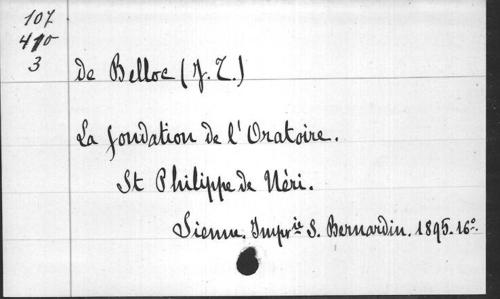 107
410
3
de Belloc (J. T.)
La fondation de l'Oratoire.
St Philippe de Néri.
Sienne. Imprie S. Bernardin. 1895. 16º.